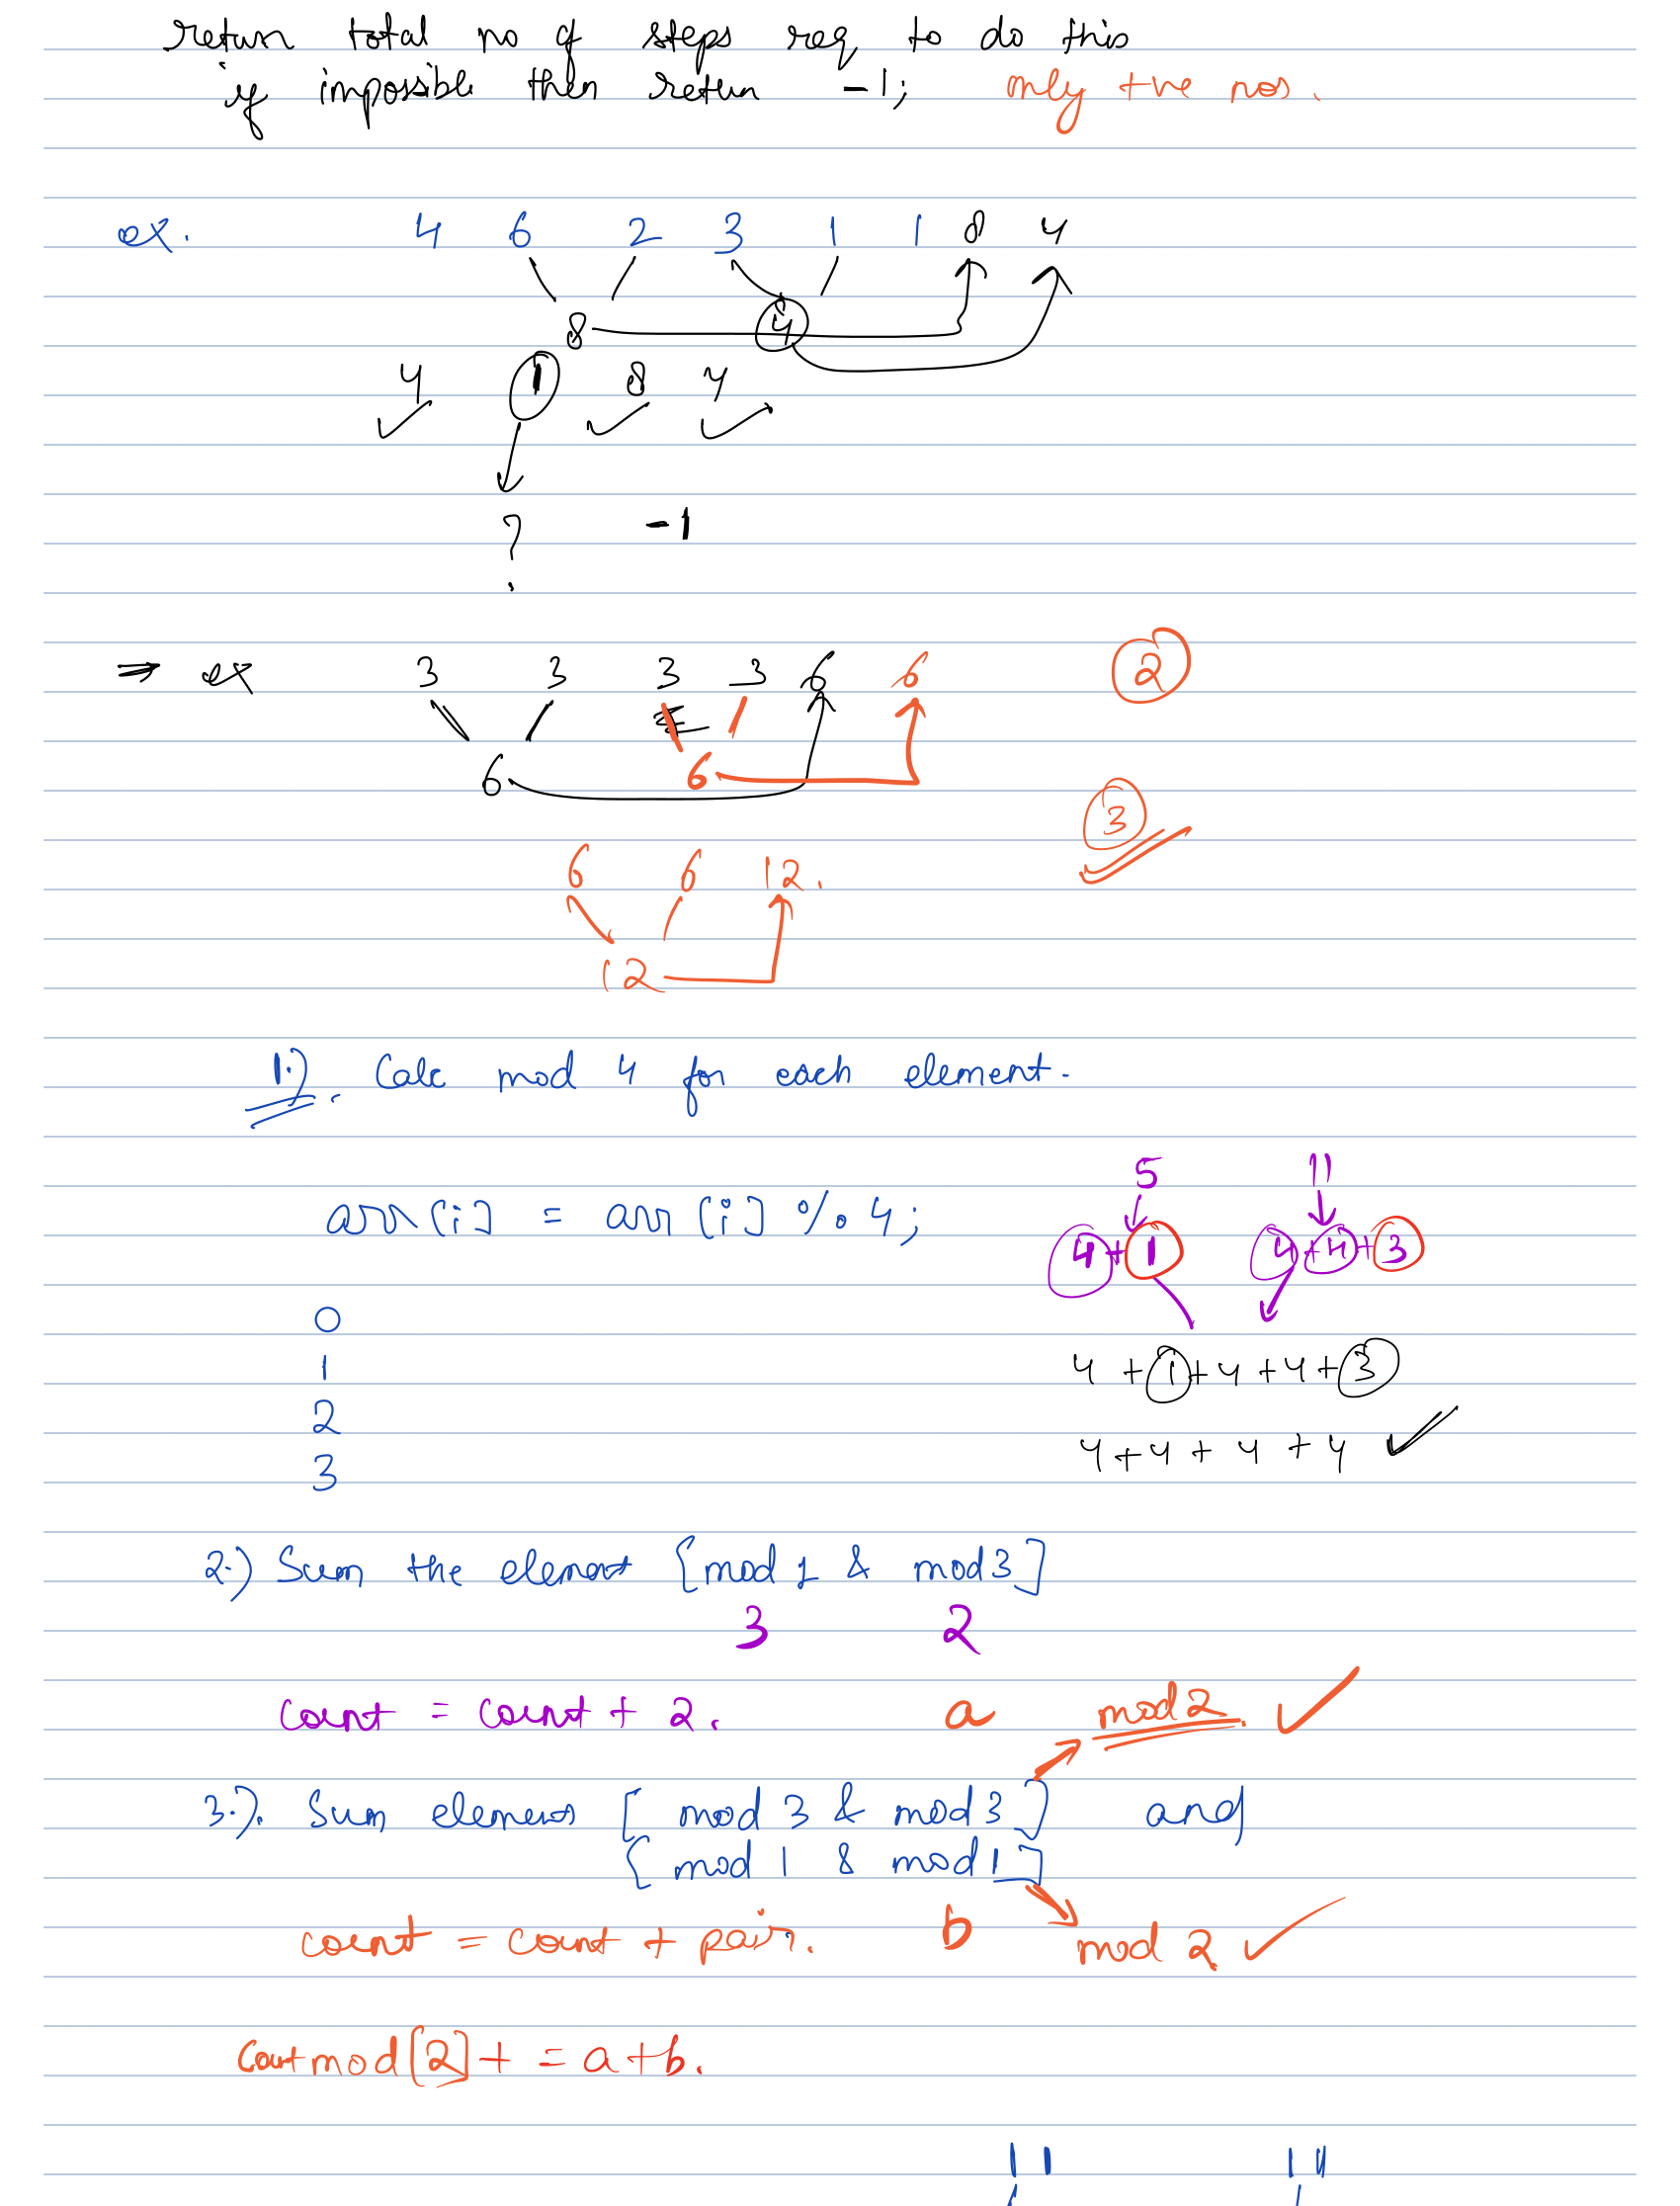 return total no of steps req to do this
if impossible then return -1; only +ve nos.
ex. 4 6 2 3 1 1 8 4
8 4
4 1 8 4
? -1
⇒ ex 3 3 3 3 6 6 2
6 6
3
6 6 12.
12
1.) Calc mod 4 for each element.
5 11
arr[i] = arr[i] % 4;
4+1 4+4+3
0
1 4+1+4+4+3
2 4+4+4+4
3
2.) Sum the element [mod 1 & mod 3]
3 2
count = count + 2. a mod 2.
3.). Sum element [mod 3 & mod 3] and
[mod 1 & mod 1]
count = count + pair. b mod 2
countmod[2]+ = a+b.
11 14